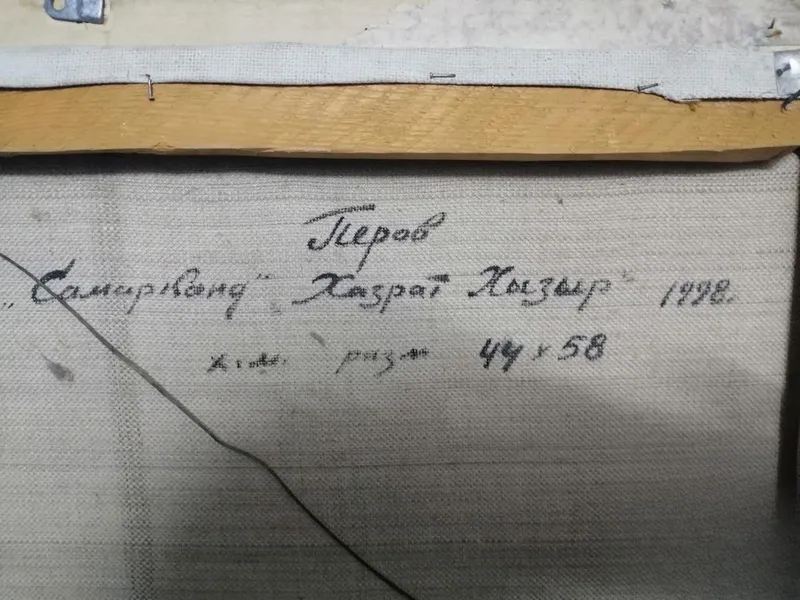 Перов
„Самарканд" „Хазрат Хызыр" 1998.
х.м. разм 44 х 58